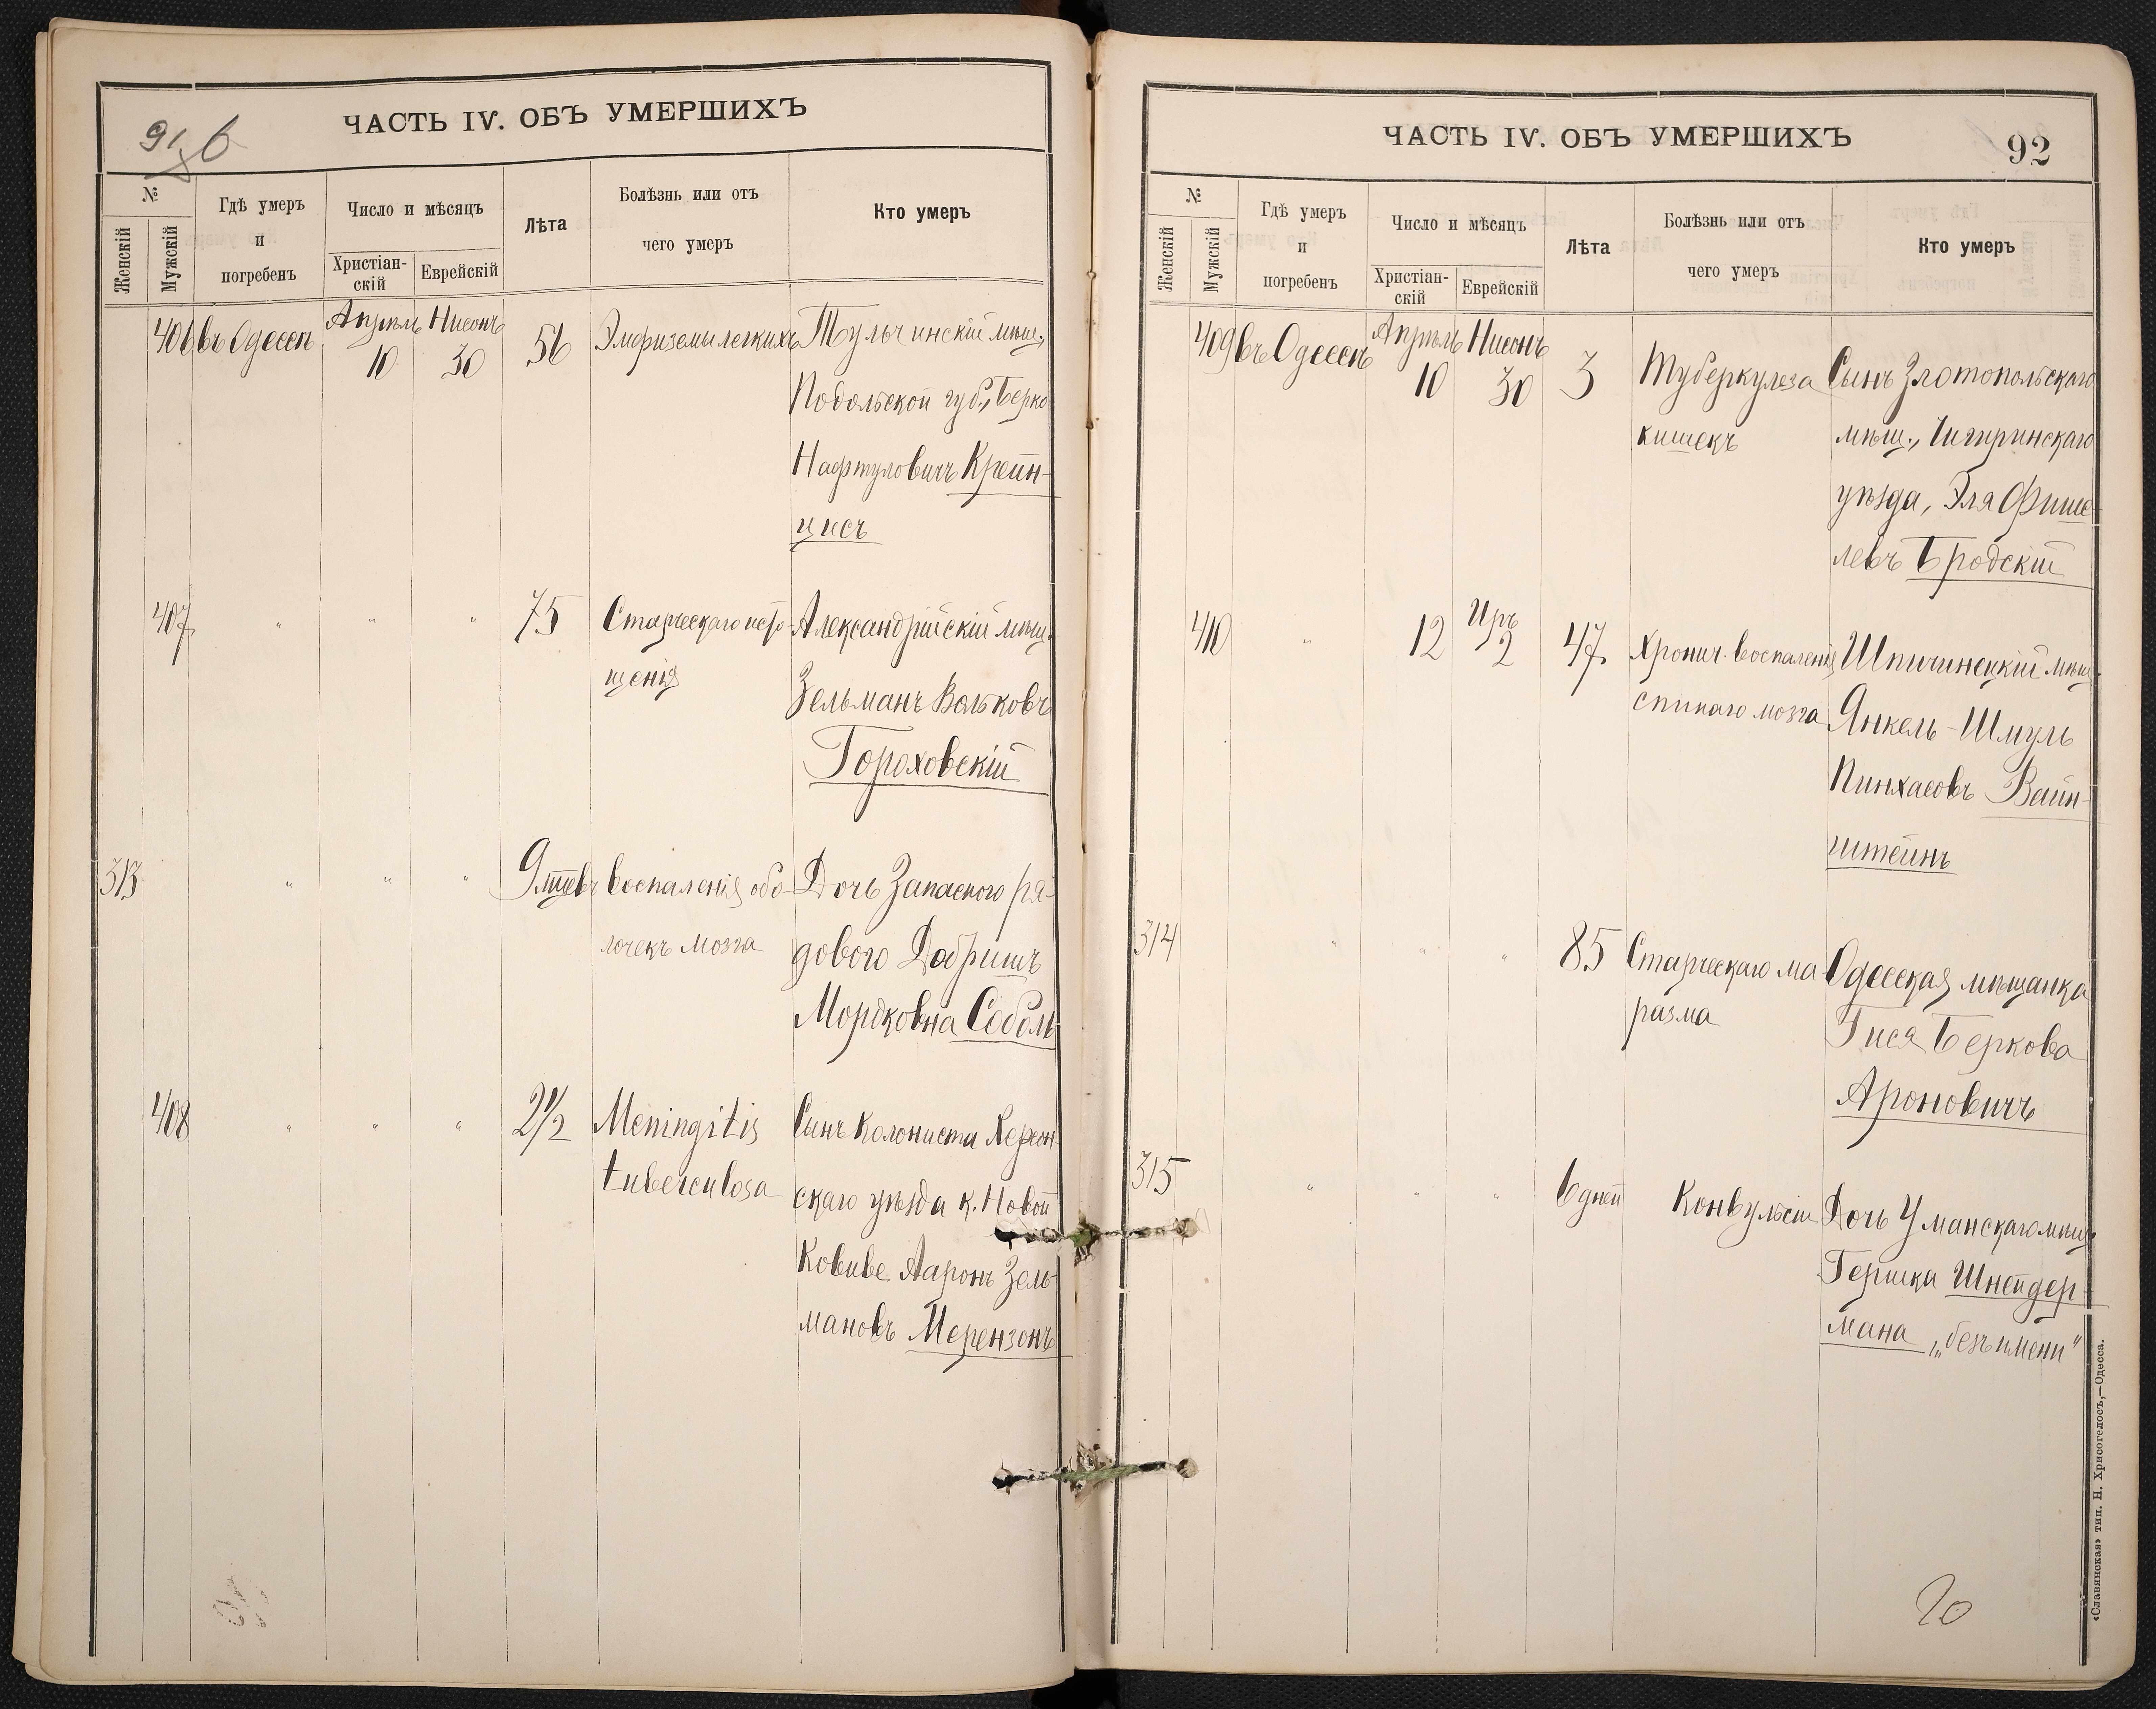 ЧАСТЬ IV. ОБЪ УМЕРШИХЪ
№
Женскій
Мужскій
Гдѣ умеръ
и
погребенъ
Число и мѣсяцъ
Христіан-
скій
Еврейскій
Лѣта
Болѣзнь или отъ
чего умеръ
Кто умеръ
406 въ Одессѣ Апрѣль 10 Нисонъ 30 56 Эмфиземы легкихъ Тульчинскій мѣщ.,
Подольской губ., Берко
Нафтуловичъ Крейн-
цисъ
407 " " " 75 Старческаго исто- Александрійскій мѣщ.
щенія Зельманъ Вольковъ
Гороховскій
313 " " " 9 мѣсцевъ воспаленія обо- Дочь Запасного ря-
лочекъ мозга дового Добришъ
Мордковна Соболь
408 " " " 2 1/2 Meningitis Сынъ колониста Херсон-
tuberculosa скаго уѣзда к. Новой
Ковиве Ааронъ Зель-
мановъ Мерензонъ
ЧАСТЬ IV. ОБЪ УМЕРШИХЪ
92
№
Женскій
Мужскій
Гдѣ умеръ
и
погребенъ
Число и мѣсяцъ
Христіан-
скій
Еврейскій
Лѣта
Болѣзнь или отъ
чего умеръ
Кто умеръ
409 въ Одессѣ Апрѣль 10 Нисонъ 30 3 Туберкулеза Сынъ Златопольскаго
кишекъ мѣщ., Чигиринскаго
уѣзда, Эля Фише-
левъ Бродскій
410 " 12 Иръ 2 47 Хронич. воспаленія Шпичинецкій мѣщ.
спинаго мозга Янкель-Шмуль
Пинхасовъ Вайн-
штейнъ
314 " " " 85 Старческаго ма- Одесская мѣщанка
разма Гися Беркова
Ароновичъ
315 " " " 6 дней Конвульсіи Дочь Уманскаго мѣщ.
Гершка Шнейдер-
мана „безъ имени"
20
«Славянская» тип. Н. Хрисогелосъ,—Одесса.